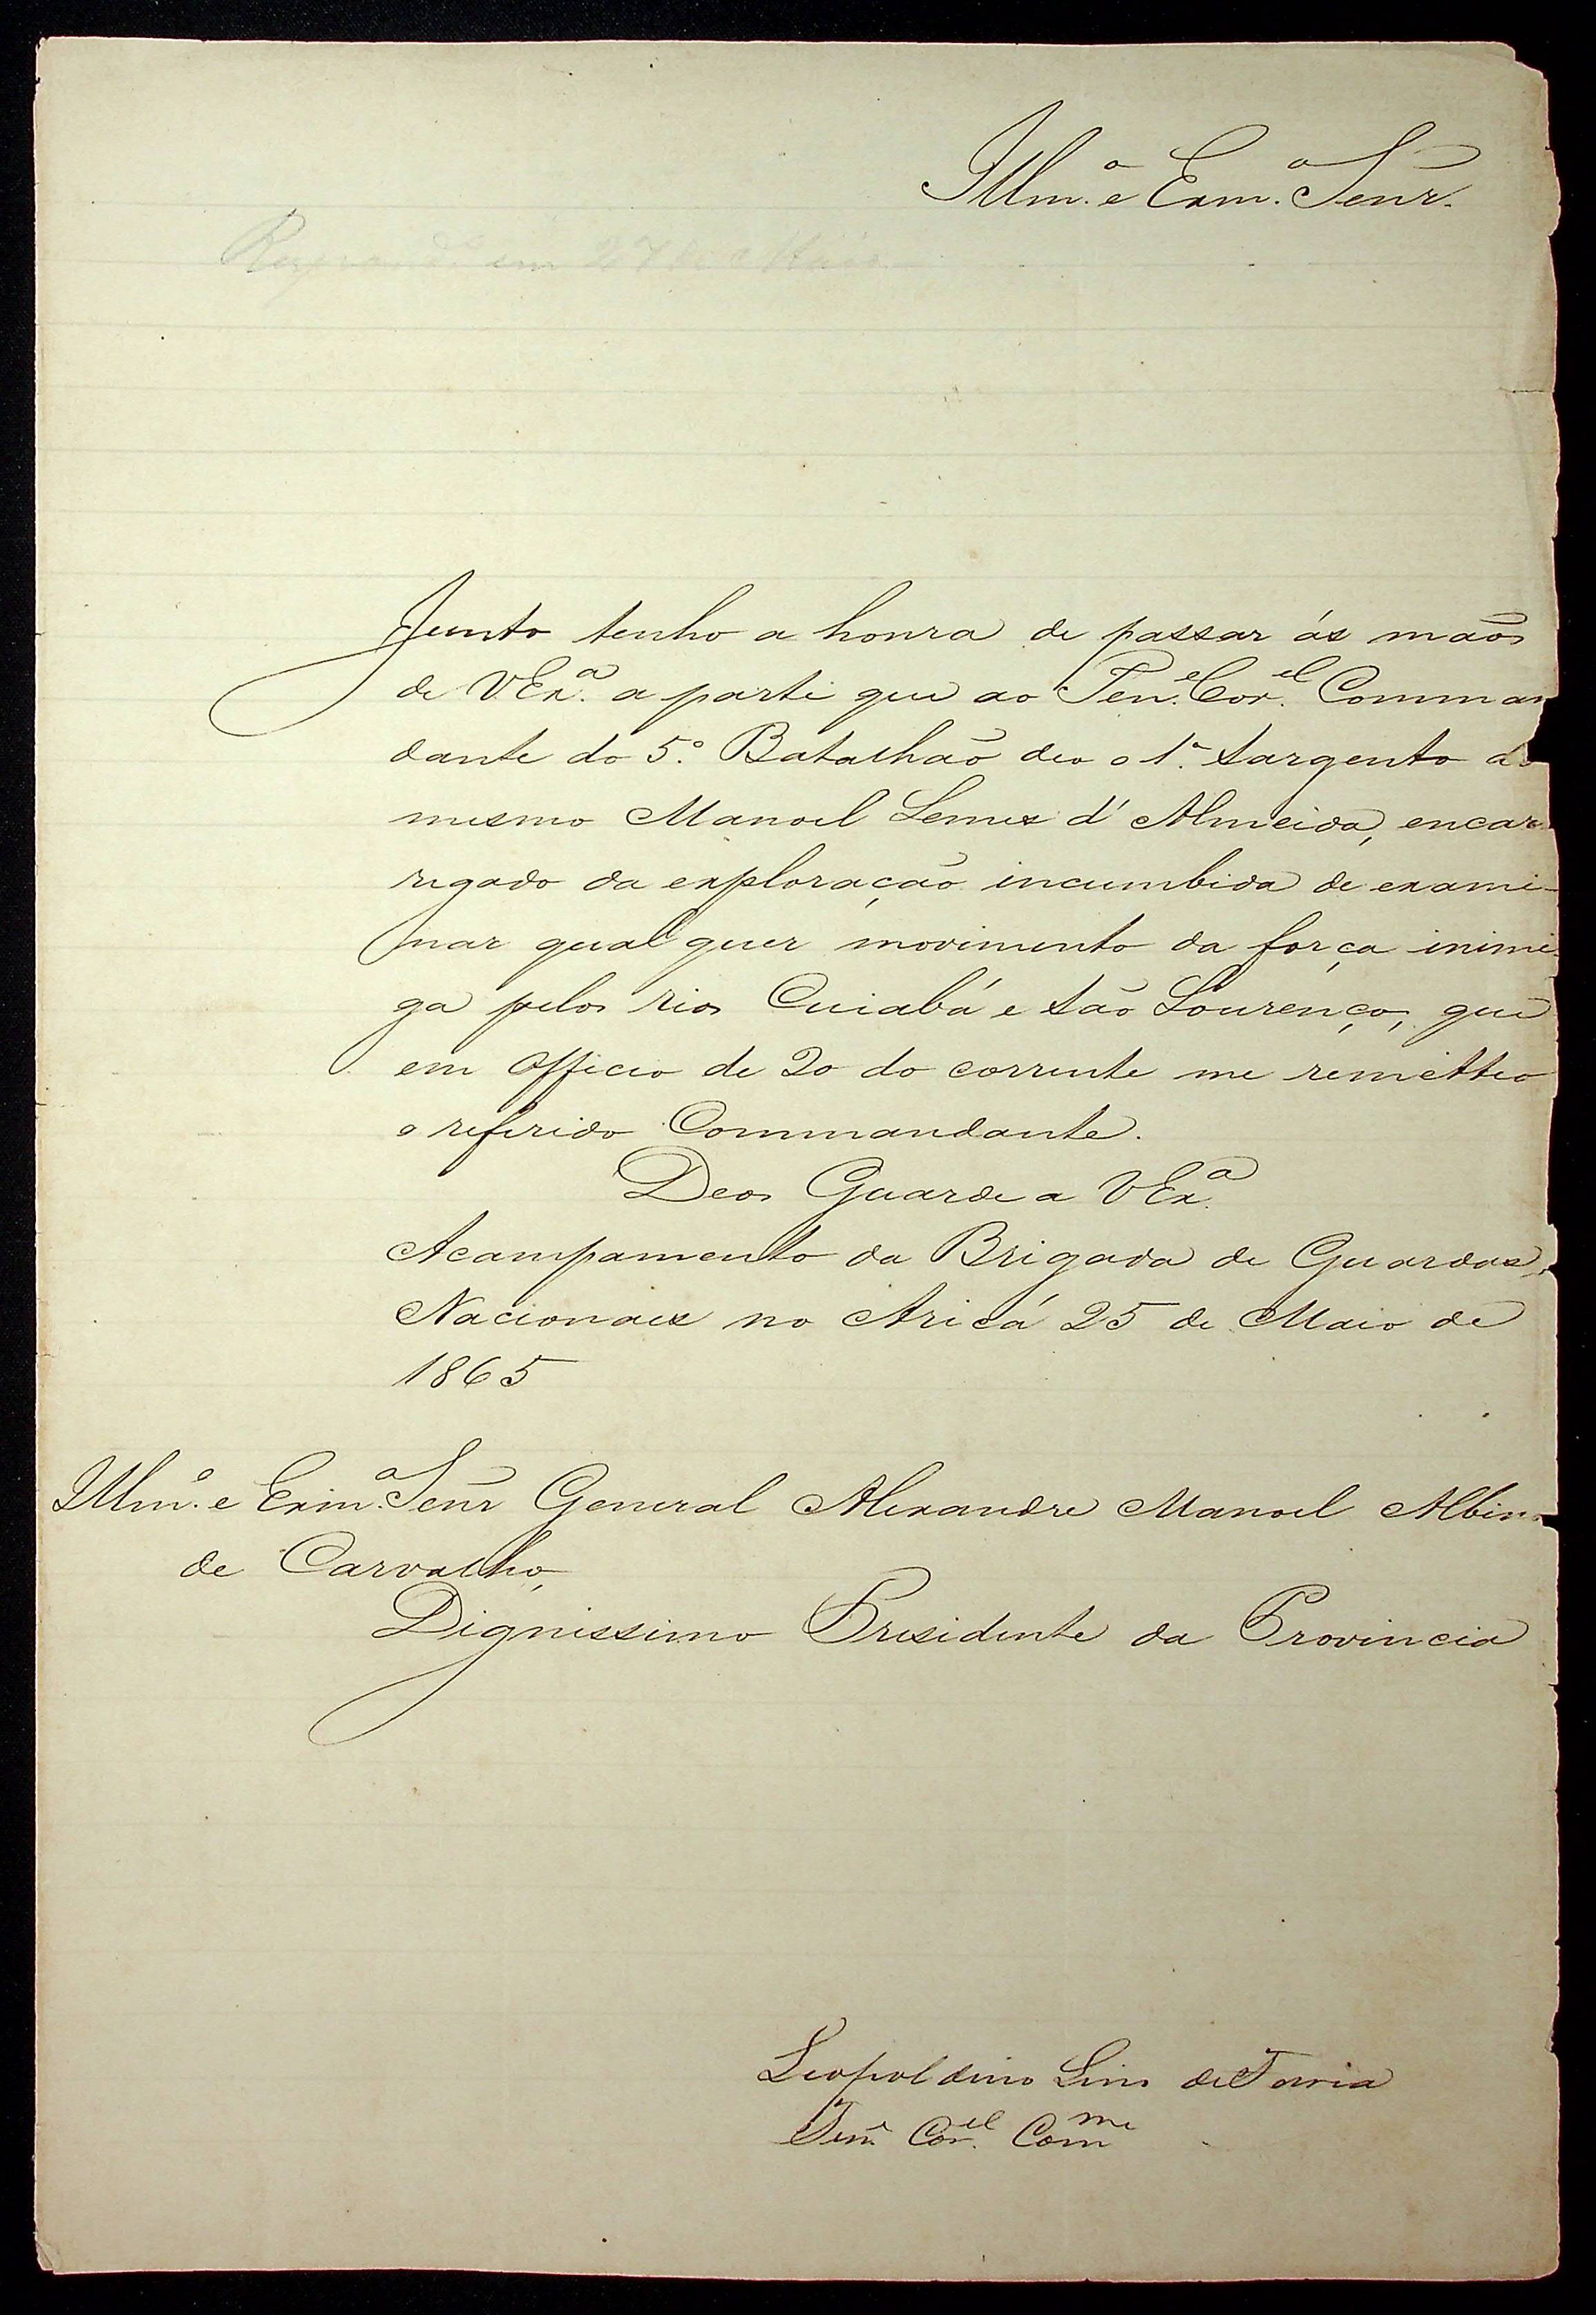 Illm.º e Exm.º Senr.
Respond.º em 27 de Maio
Junto tenho a honra de passar ás mãos
de VEx.ª a parte que ao Ten.e Cor.el Comman
dante do 5.º Batalhão deo o 1.º Sargento do
mesmo Manoel Lemes d'Almeida, encar-
regado da exploração incumbida de exami-
nar qual quer movimento da força inimi-
ga pelos rios Cuiabá e São Lourenço, que
em officio de 20 do corrente me remetteo
o referido Commandante.
Deos Guarde a VEx.ª
Acampamento da Brigada de Guardas
Nacionaes no Aricá 25 de Maio de
1865
Illm.º e Exm.º Senr General Alexandre Manoel Albino
de Carvalho,
Dignissimo Presidente da Provincia
Leopoldino Lins de Faria
Ten.e Cor.el Com.me